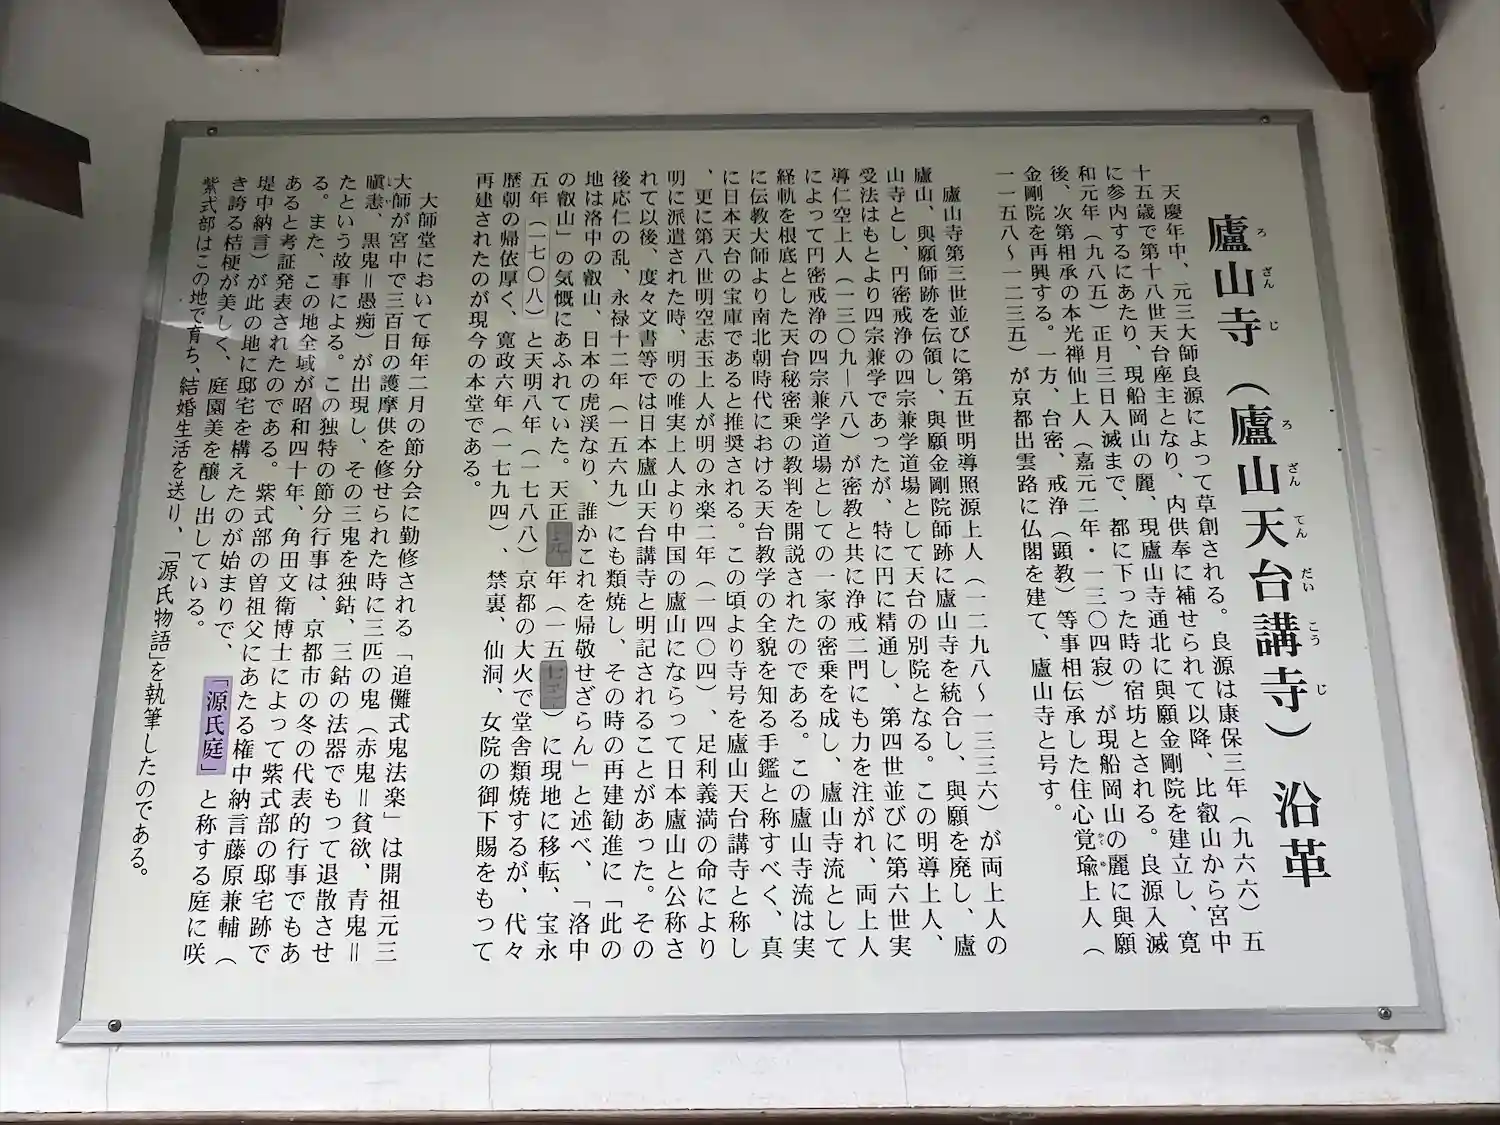 廬山寺（廬山天台講寺）沿革
ろ ざん じ ろ ざん てん だい こう じ
天慶年中、元三大師良源によって草創される。良源は康保三年（九六六）五
十五歳で第十八世天台座主となり、内供奉に補せられて以降、比叡山から宮中
に参内するにあたり、現船岡山の麗、現廬山寺通北に與願金剛院を建立し、寛
和元年（九八五）正月三日入滅まで、都に下った時の宿坊とされる。良源入滅
後、次第相承の本光禅仙上人（嘉元二年・一三〇四寂）が現船岡山の麗に與願
金剛院を再興する。一方、台密、戒浄（顕教）等事相伝承した住心覚瑜上人（
かくゆ
一一五八～一二三五）が京都出雲路に仏閣を建て、廬山寺と号す。
廬山寺第三世並びに第五世明導照源上人（一二九八～一三三六）が両上人の
廬山、與願師跡を伝領し、與願金剛院師跡に廬山寺を統合し、與願を廃し、廬
山寺とし、円密戒浄の四宗兼学道場として天台の別院となる。この明導上人、
受法はもとより四宗兼学であったが、特に円に精通し、第四世並びに第六世実
導仁空上人（一三〇九－八八）が密教と共に浄戒二門にも力を注がれ、両上人
によって円密戒浄の四宗兼学道場としての一家の密乗を成し、廬山寺流として
経軌を根底とした天台秘密乗の教判を開説されたのである。この廬山寺流は実
に伝教大師より南北朝時代における天台教学の全貌を知る手鑑と称すべく、真
に日本天台の宝庫であると推奨される。この頃より寺号を廬山天台講寺と称し
、更に第八世明空志玉上人が明の永楽二年（一四〇四）、足利義満の命により
明に派遣された時、明の唯実上人より中国の廬山にならって日本廬山と公称さ
れて以後、度々文書等では日本廬山天台講寺と明記されることがあった。その
後応仁の乱、永禄十二年（一五六九）にも類焼し、その時の再建勧進に「此の
地は洛中の叡山、日本の虎渓なり、誰かこれを帰敬せざらん」と述べ、「洛中
の叡山」の気慨にあふれていた。天正元年（一五七三）に現地に移転、宝永
五年（一七〇八）と天明八年（一七八八）京都の大火で堂舎類焼するが、代々
歴朝の帰依厚く、寛政六年（一七九四）、禁裏、仙洞、女院の御下賜をもって
再建されたのが現今の本堂である。
大師堂において毎年二月の節分会に勤修される「追儺式鬼法楽」は開祖元三
大師が宮中で三百日の護摩供を修せられた時に三匹の鬼（赤鬼＝貧欲、青鬼＝
瞋恚、黒鬼＝愚痴）が出現し、その三鬼を独鈷、三鈷の法器でもって退散させ
たという故事による。この独特の節分行事は、京都市の冬の代表的行事でもあ
る。また、この地全域が昭和四十年、角田文衛博士によって紫式部の邸宅跡で
あると考証発表されたのである。紫式部の曽祖父にあたる権中納言藤原兼輔（
堤中納言）が此の地に邸宅を構えたのが始まりで、「源氏庭」と称する庭に咲
き誇る桔梗が美しく、庭園美を醸し出している。
紫式部はこの地で育ち、結婚生活を送り、「源氏物語」を執筆したのである。